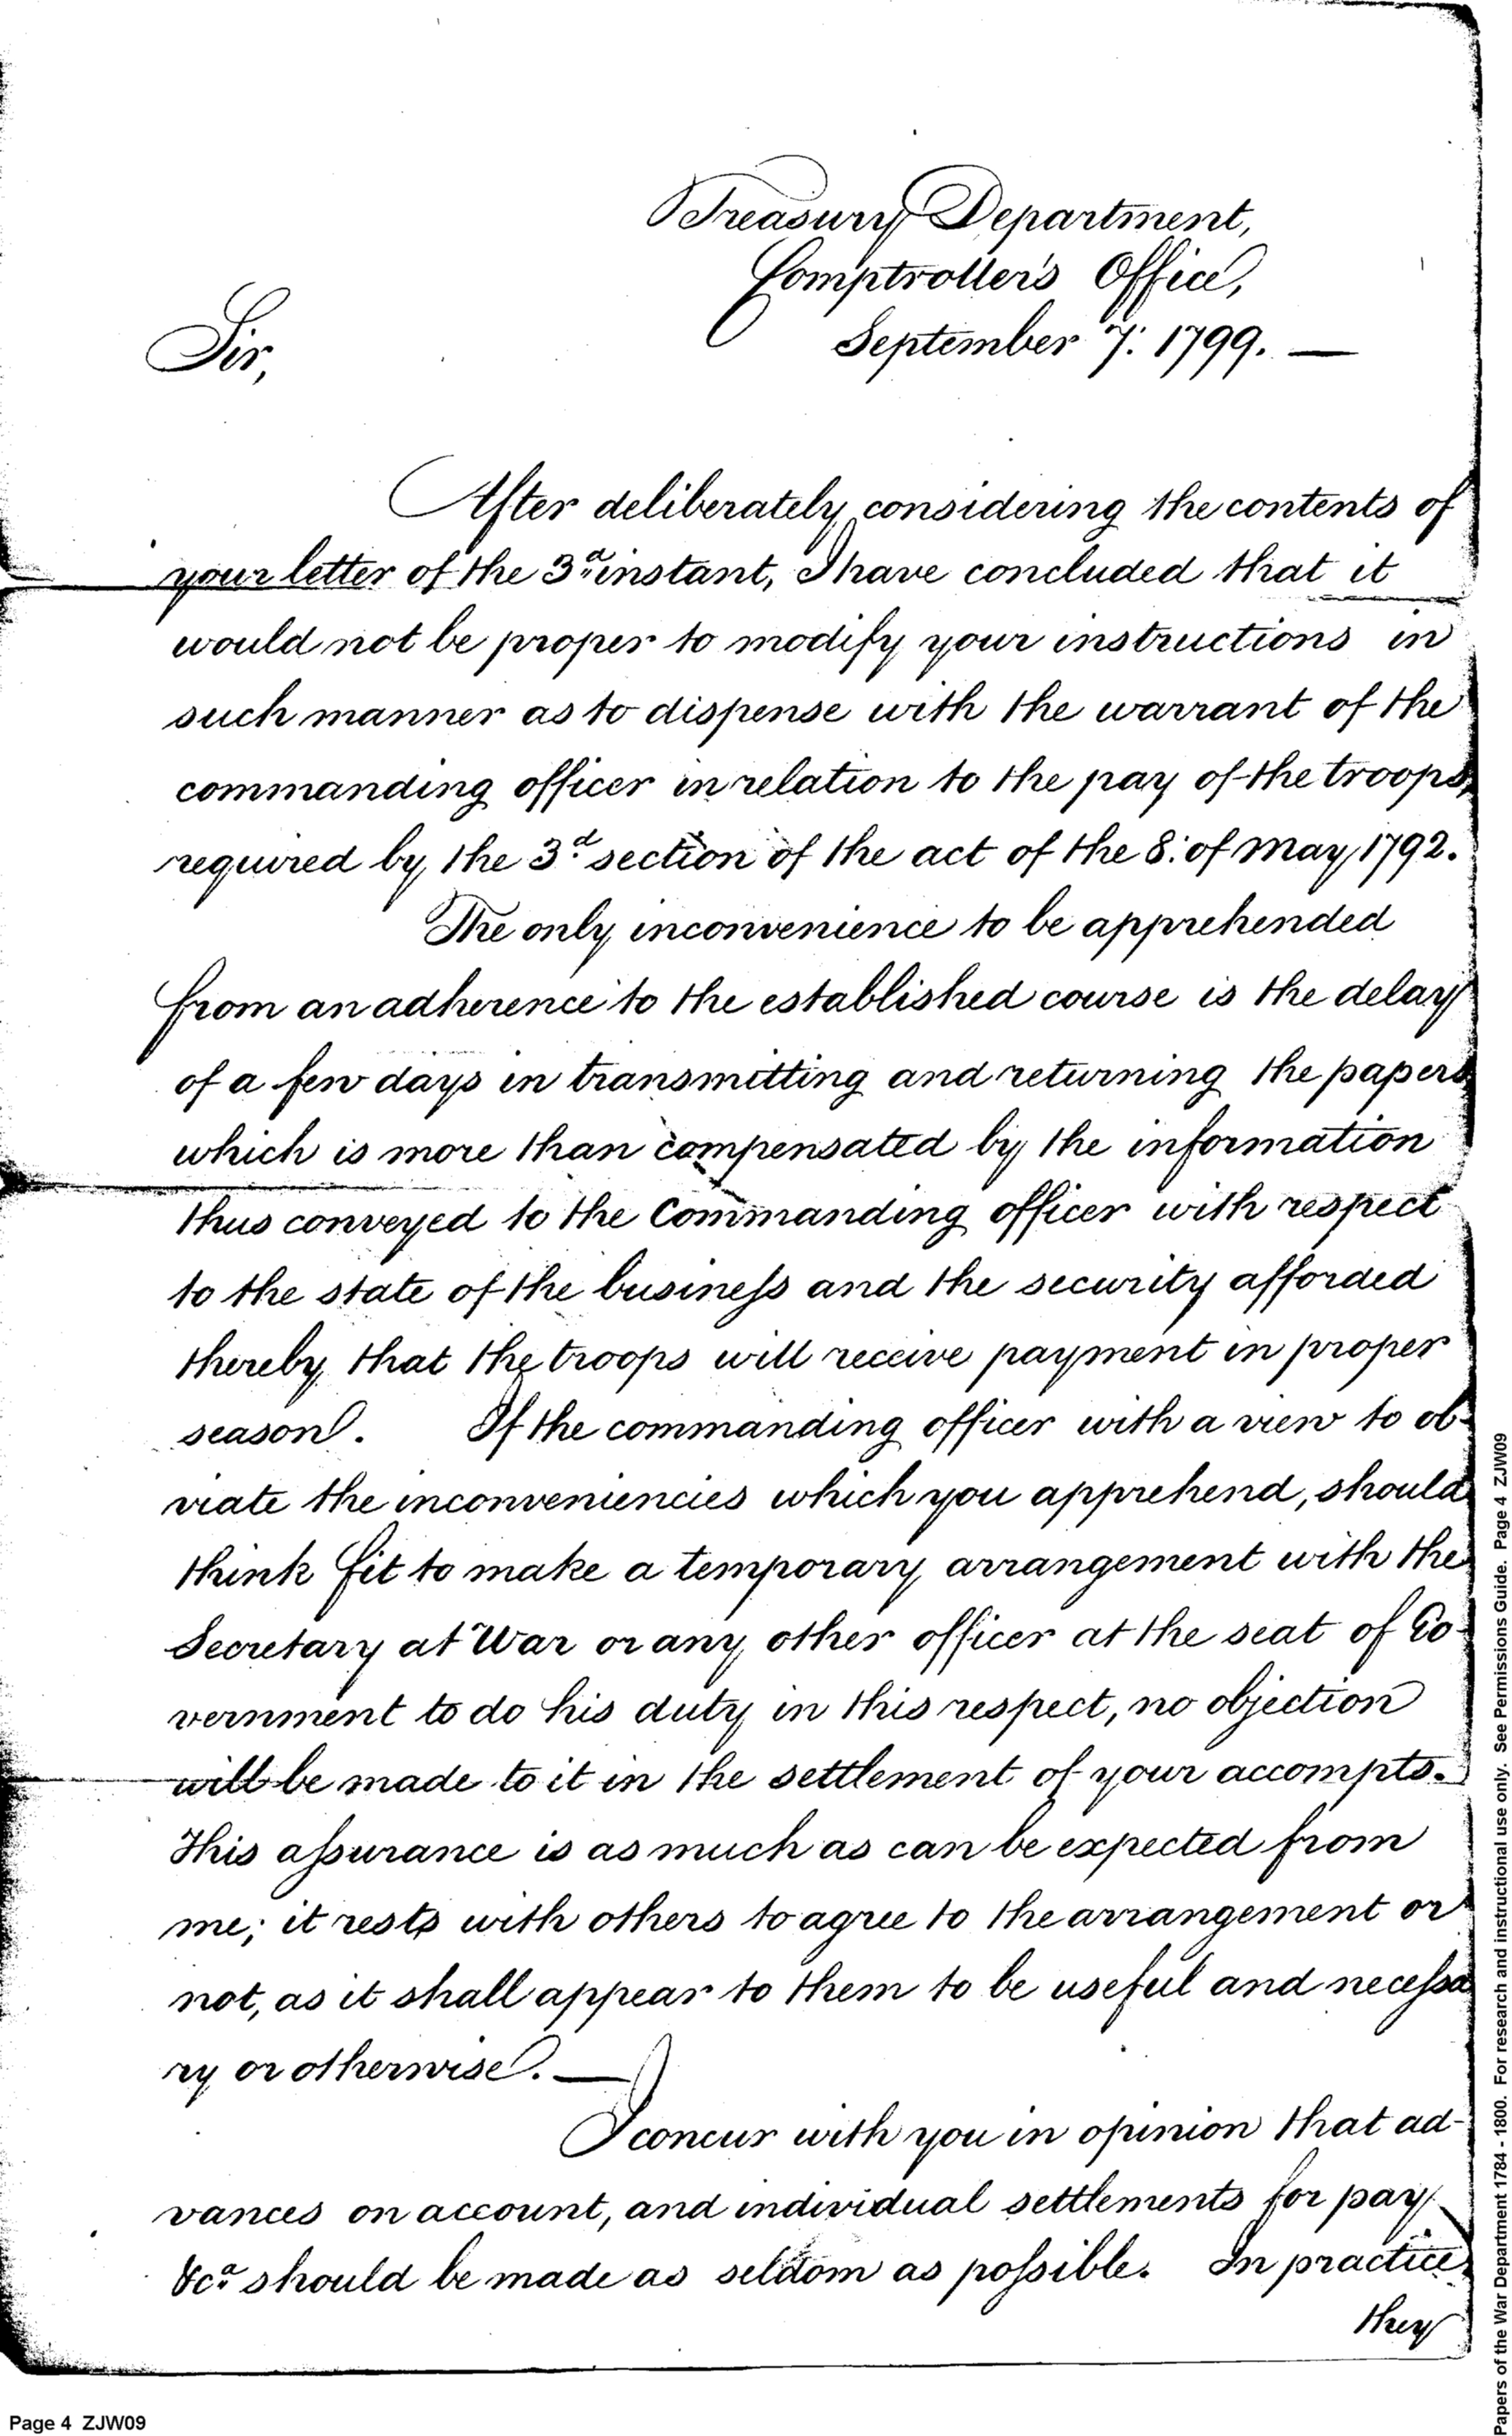 Treasury Department,
Comptroller's Office,
September 7: 1799. —
Sir,
After deliberately considering the contents of
your letter of the 3d instant, I have concluded that it
would not be proper to modify your instructions in
such manner as to dispense with the warrant of the
commanding officer in relation to the pay of the troops,
required by the 3d section of the act of the 8: of May 1792.
The only inconvenience to be apprehended
from an adherence to the established course is the delay
of a few days in transmitting and returning the papers
which is more than compensated by the information
thus conveyed to the Commanding officer with respect
to the state of the business and the security afforded
thereby that the troops will receive payment in proper
season. If the commanding officer with a view to ob-
viate the inconveniencies which you apprehend, should
think fit to make a temporary arrangement with the
Secretary at War or any other officer at the seat of Go-
vernment to do his duty in this respect, no objection
will be made to it in the settlement of your accompts.
This assurance is as much as can be expected from
me; it rests with others to agree to the arrangement or
not, as it shall appear to them to be useful and necessa
ry or otherwise. —
I concur with you in opinion that ad-
vances on account, and individual settlements for pay
&ca should be made as seldom as possible. In practice
they
Page 4 ZJW09
Papers of the War Department 1784 - 1800. For research and instructional use only. See Permissions Guide. Page 4 ZJW09